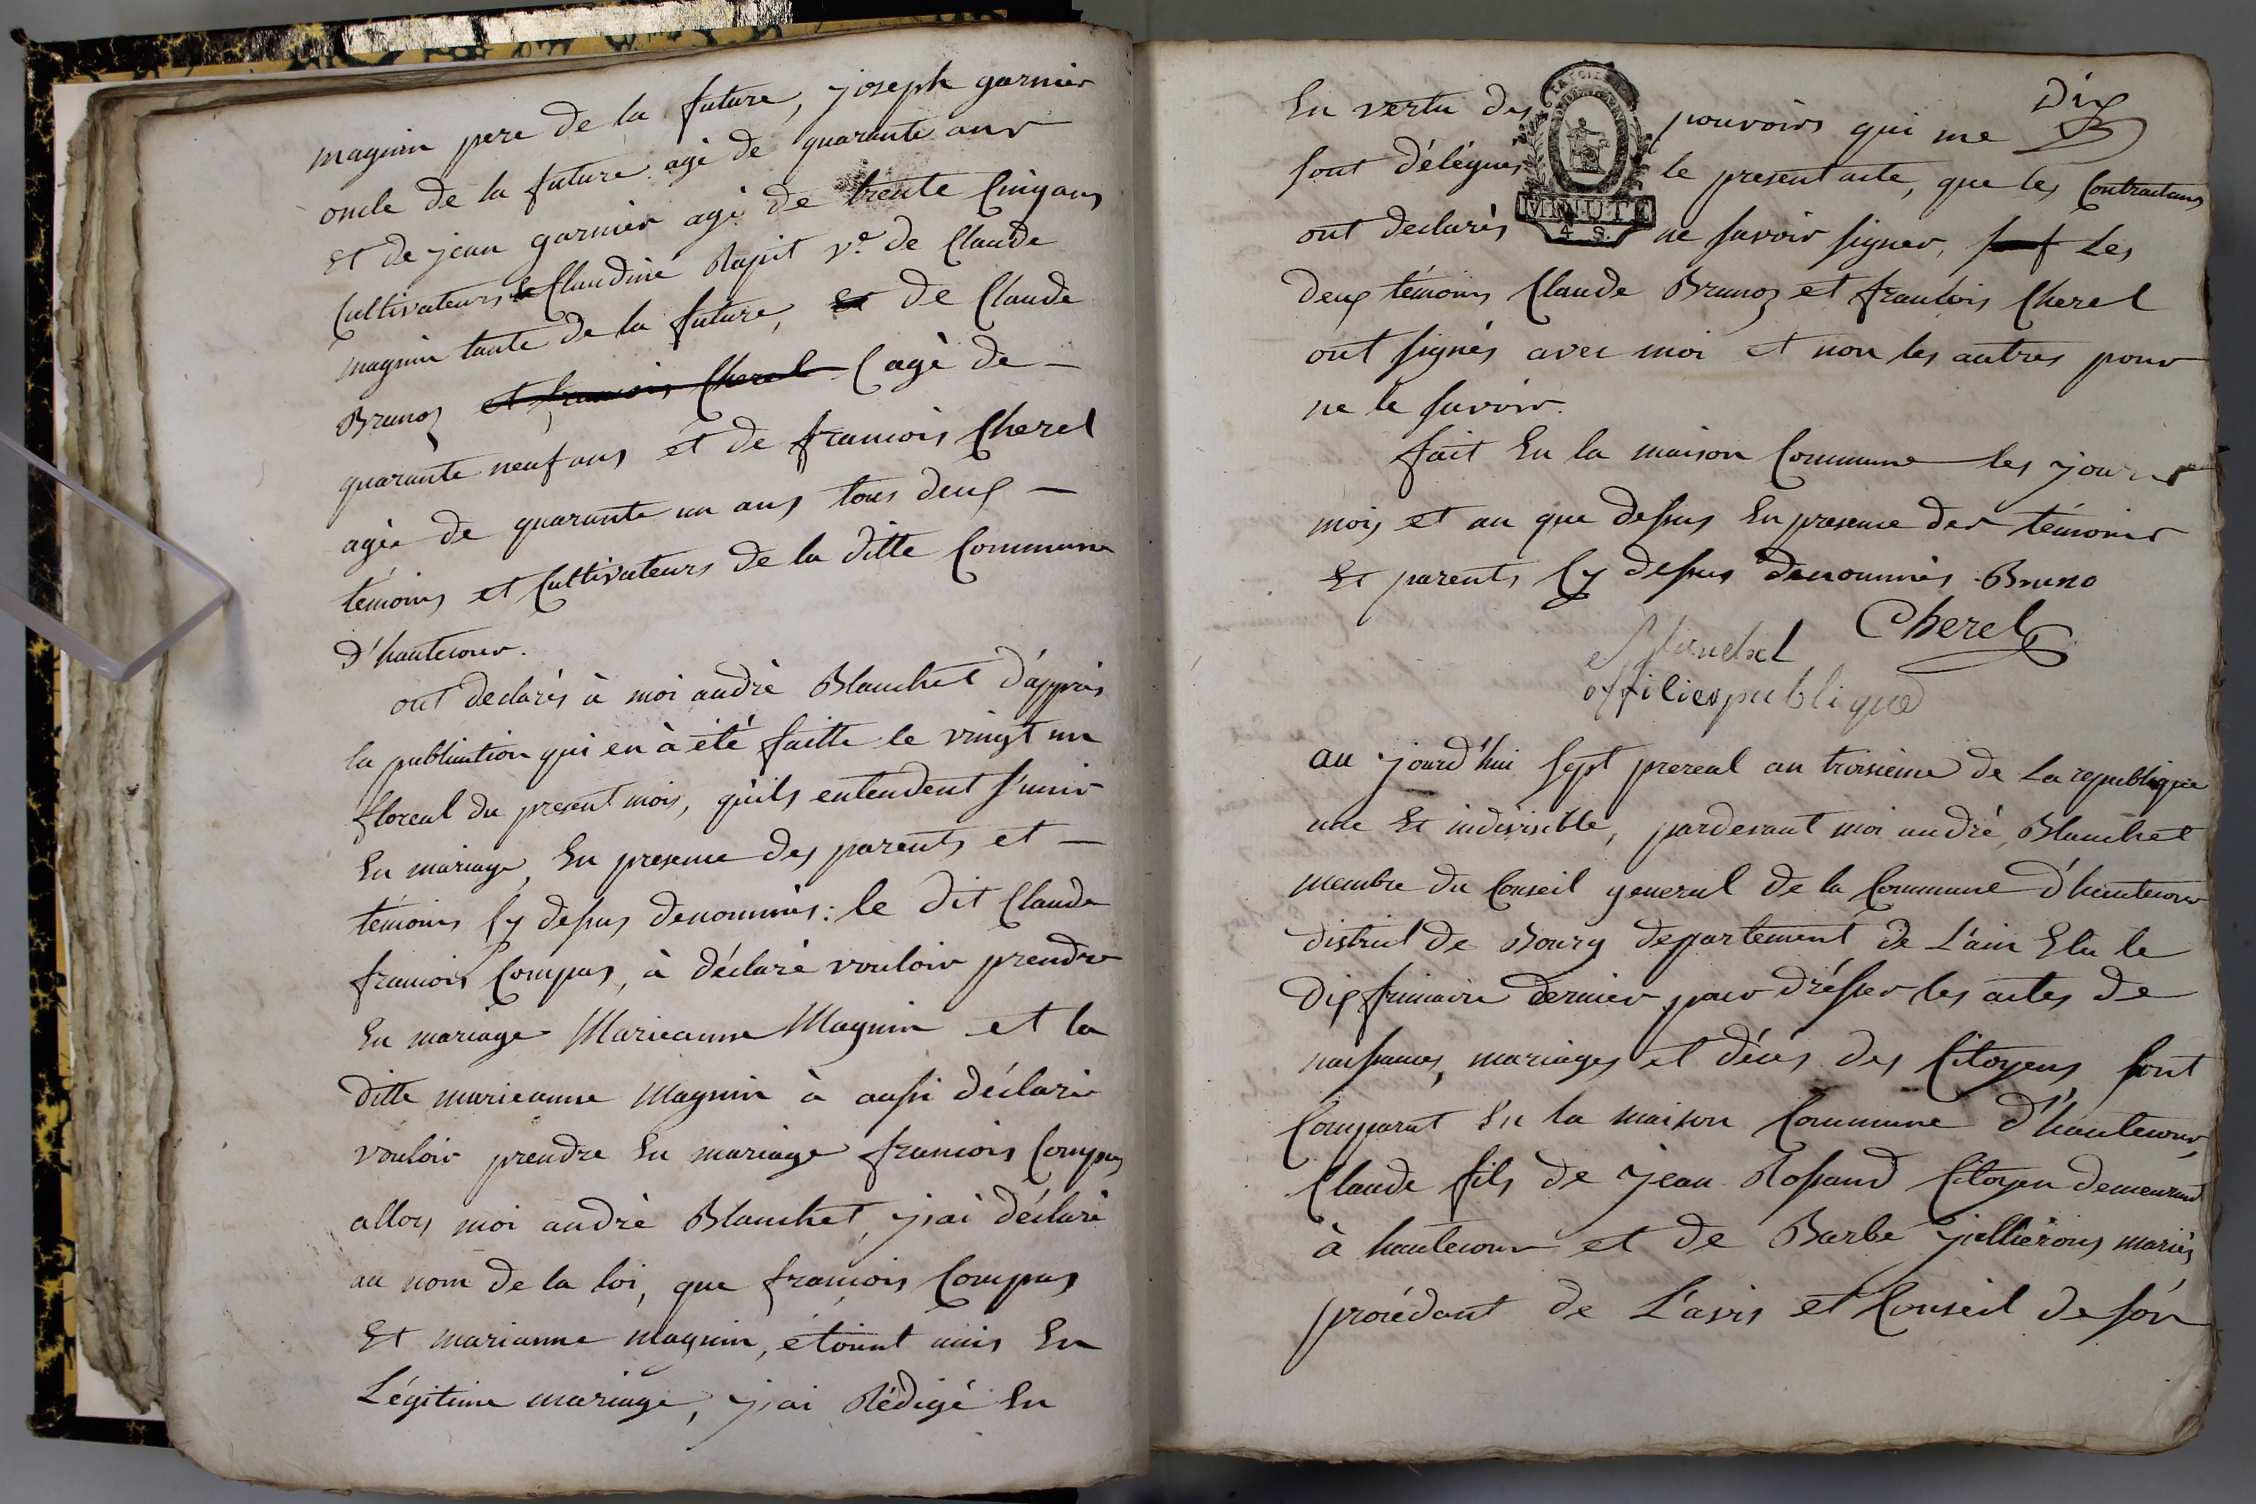 magnin pere de la future, joseph garnier
oncle de la future agé de quarante ans
et de jean garnier agé de trente cinq ans
Cultivateurs Claudine Rapit ve. de Claude
magnin tante de la future, et de Claude
Brunoz et francois Cherel agé de
quarante neuf ans et de francois Cherel
agée de quarante un ans tous deux
témoins et Cultivateurs de la ditte Commune
d'hautecour.
ont declarés à moi andré Blanchet d'apprés
la publication qui en à été faitte le vingt un
floreal du present mois, quils entendent s'unir
En mariage, En presence des parents et
témoins Cy dessus denommés: le dit Claude
francois Compas, à déclaré vouloir prendre
En mariage Marieanne Magnin et la
ditte marieanne magnin à aussi déclarée
vouloir prendre En mariage francois Compas
allors moi andré Blanchet, j'ai déclaré
au nom de la loi, que francois Compas
Et marianne magnin, étoient unis En
Légitime mariage, j'ai Rédigé En
Dix
En vertu des pouvoirs qui me
sont délégués le present acte, que les Contractans
ont declarés ne savoir signer, Les
MINUTE
4 S.
deux témoins Claude Brunoz et francois Cherel
ont signés avec moi et non les autres pour
ne le savoir.
fait En la maison Commune les jours
mois et an que dessus En presence des témoins
Et parents Cy dessus denommés. Bruno
Cherel
Blanchet
officier publique
au jourd'hui sept prereal an troisieme de La republique
une Et indivisible, pardevant moi andré Blanchet
membre du Conseil general de la Commune d'hautecour
district de Bourg departement de L'ain Elu le
dix frimaire dernier pour drésser les actes de
naissances, mariages et décés des Citoyens, sont
Comparut En la maison Commune d'hautecour,
Claude fils de jean Rossand Citoyen demeurant
à hautecour et de Barbe jullierons mariés
procédant de L'avis et Conseil de són